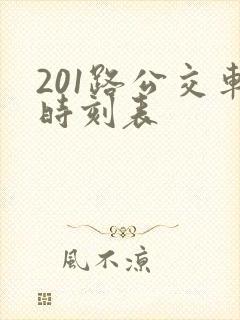 201路公交車
時刻表
風不凉